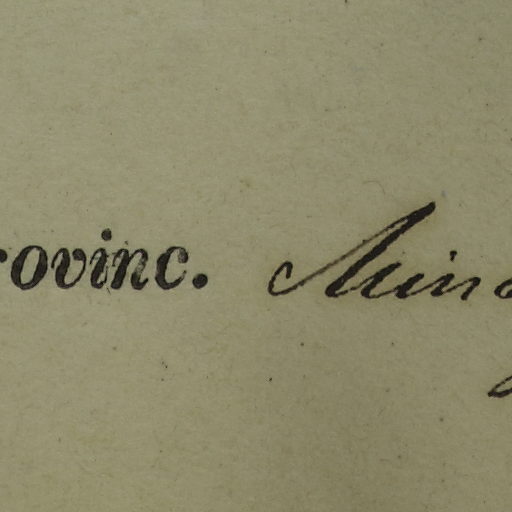 rovinc. Mina